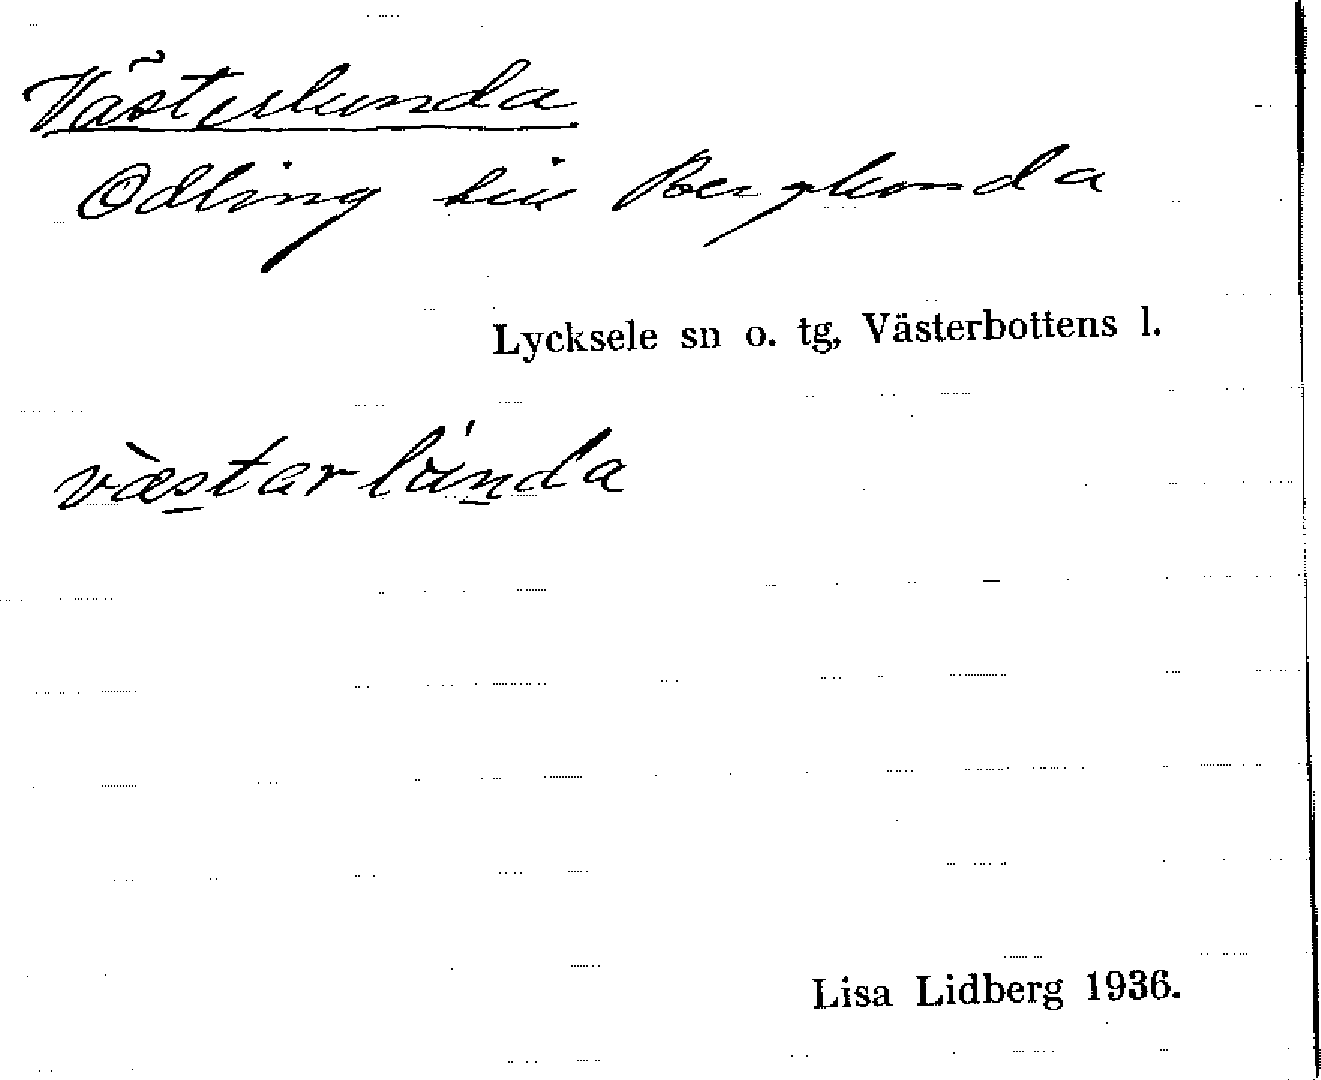 Västerlunda
Odling till Berglunda
Lycksele sn o. tg, Västerbottens l.
væ̀starlúnda
Lisa Lidberg 1936.